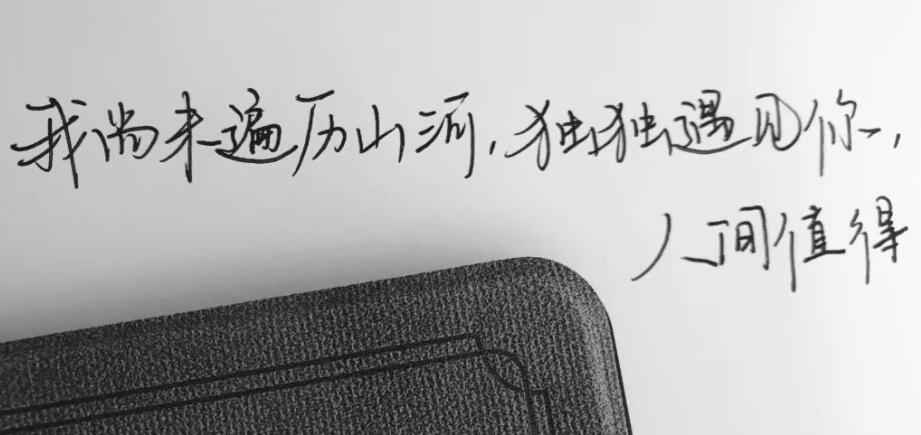 我尚未遍历山河,独独遇见你,
人间值得